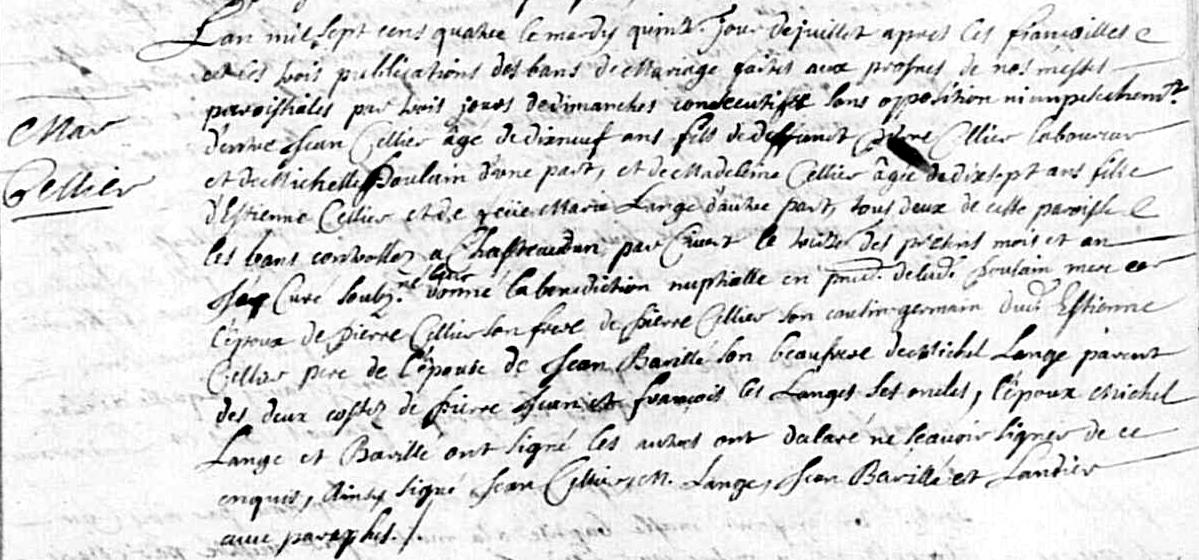 L'an mil sept cens quatre le mardy quinz.e jour de juillet apres les fiançailles
et les trois publications des bans de Mariage faites aux prosnes de nos messes
paroissiales par trois jours de dimanches consecutifs sans opposition ni empeschem.t
Mar
d'entre Jean Cellier âgé de dixneuf ans fils de deffunct Cellier laboureur
Cellier
et de Michelle Poulain d'une part, et de Madeleine Cellier âgée de dix sept ans fille
d'Estienne Cellier et de feüe Marie Lange d'autre part, tous deux de cette paroisse
les bans controllez a Chasteaudun par le des mois et an
Curé soubz.né leur donné la benediction nuptialle en de lad.e Poulain mere
l'époux de Pierre Cellier son frere de Pierre Cellier son cousin germain dud. Estienne
Cellier pere de l'épouse de Jean Barillé son beaufrere de Michel Lange parent
des deux costez de Pierre Jean et françois les Langes ses oncles, l'époux Michel
Lange et Barillé ont signé les autres ont declaré ne sçavoir signer de ce
enquis, Ainsy signé Jean Cellier, M. Lange, Jean Barillé et Landier
avec paraphes./.